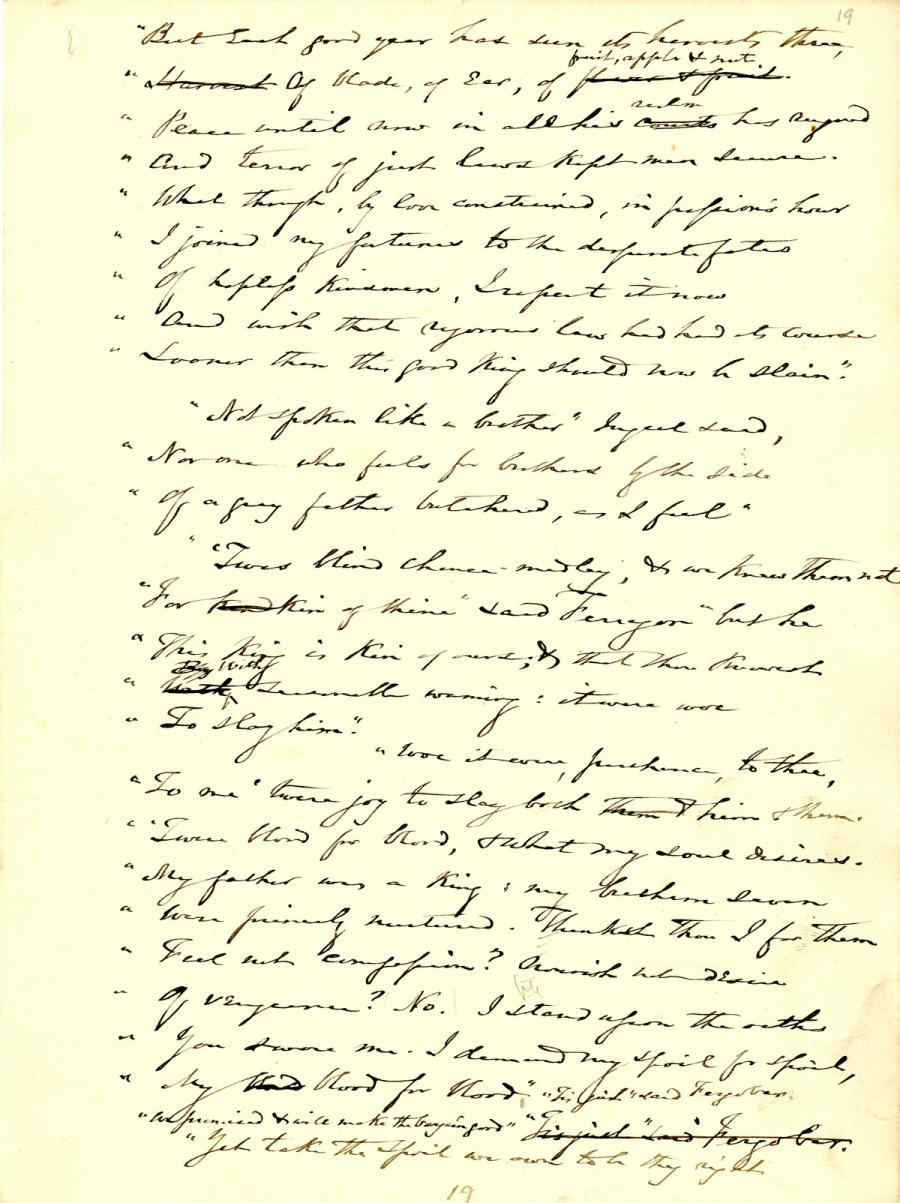 19
"But Each good year has seen its harvests three,
fruit, apple & nut
"Harvest Of blade, of Ear, of flower & fruit.
realm
"Peace until now in all his courts has reigned
"And terror of just laws kept men secure.
"What though, by love constrained, in passion's hour
"I joined my fortunes to the desperate fates
"Of hapless Kinsmen, I repent it now
"And wish that rigorous law had had its course
"Sooner than this good King should now be slain".
"Not spoken like a brother" Ingcel said,
"Nor one who feels for brothers by the side
"Of a grey father butchered, as I feel"
"'Twas blind chance-medley, & we knew them not
"For kin of thine" said Ferragon "but he
"This King is Kin of ours; & that thou knowest
By With
"With Sevenfold warning: it were woe
"To slay him".
"Woe it were, perchance, to thee,
"To me 'twere joy to slay both them & him & them.
"'Twere blood for blood, & what my soul desires.
"My father was a King: my brethren seven
"Were princely nurtured. Thinkest thou I for them
"Feel not compassion? nourish not desire
"Of vengeance? No. I stand upon the oaths
"You swore me. I demand my spoil for spoil,
"My blood for blood". "'Tis just" said Fergobar.
"We promised & will make the bargain good" "'Tis just" said Fergobar.
"Yet take the spoil we own to be thy right
19